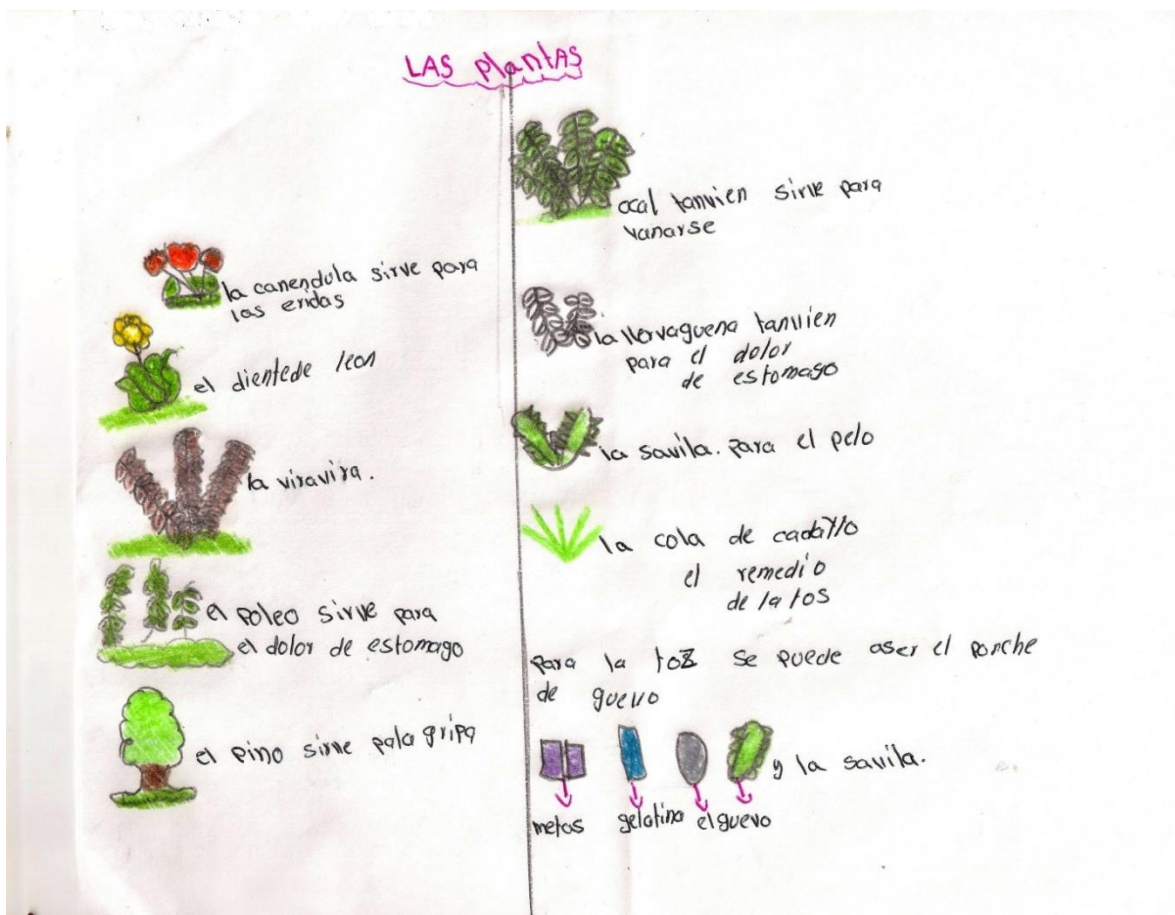 LAS PlantAS
la canendula sirve para
las eridas
el dientede leon
la viravira.
el Poleo sirve para
el dolor de estomago
el Pino sirve pala gripa
ocal tanvien sirve para
vanarse
la llervaguena tanvien
para el dolor
de estomago
la savila. Para el pelo
la cola de cadallo
el remedio
de la tos
Para la toz se puede aser el ponche
de guevo
y la savila.
metas gelatina el guevo